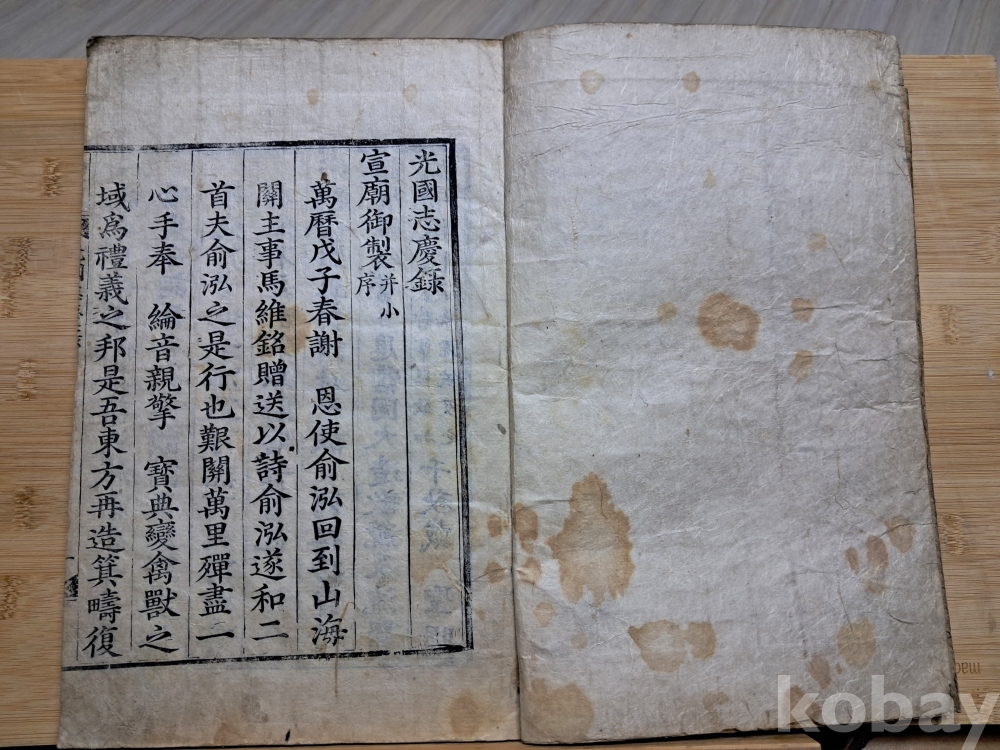 光國志慶錄
宣廟御製并小序
萬曆戊子春謝 恩使俞泓回到山海
關主事馬維銘贈送以詩俞泓遂和二
首夫俞泓之是行也艱關萬里殫盡一
心手奉 綸音親擎 寶典變禽獸之
域爲禮義之邦是吾東方再造箕疇復
mac
kobay